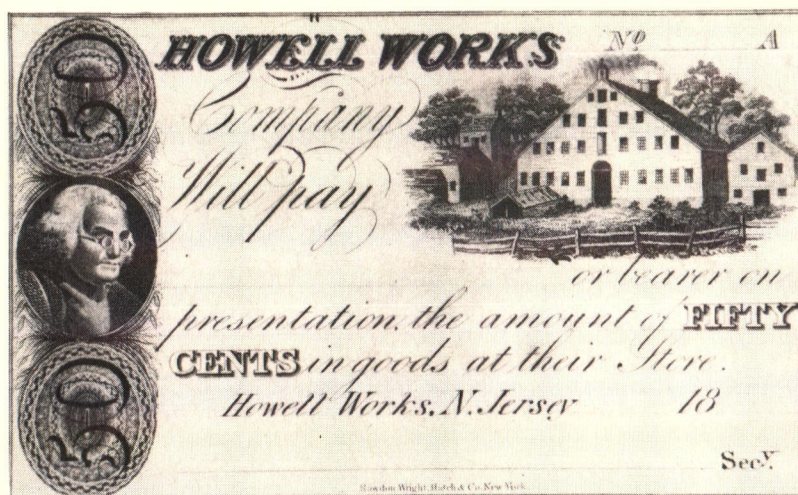 50
HOWELL WORKS Nº A
Company
Will pay
or bearer on
presentation, the amount of FIFTY
CENTS in goods at their Store.
Howell Works, N. Jersey 18
Secy.
50
Rawdon Wright, Hatch & Co. New York